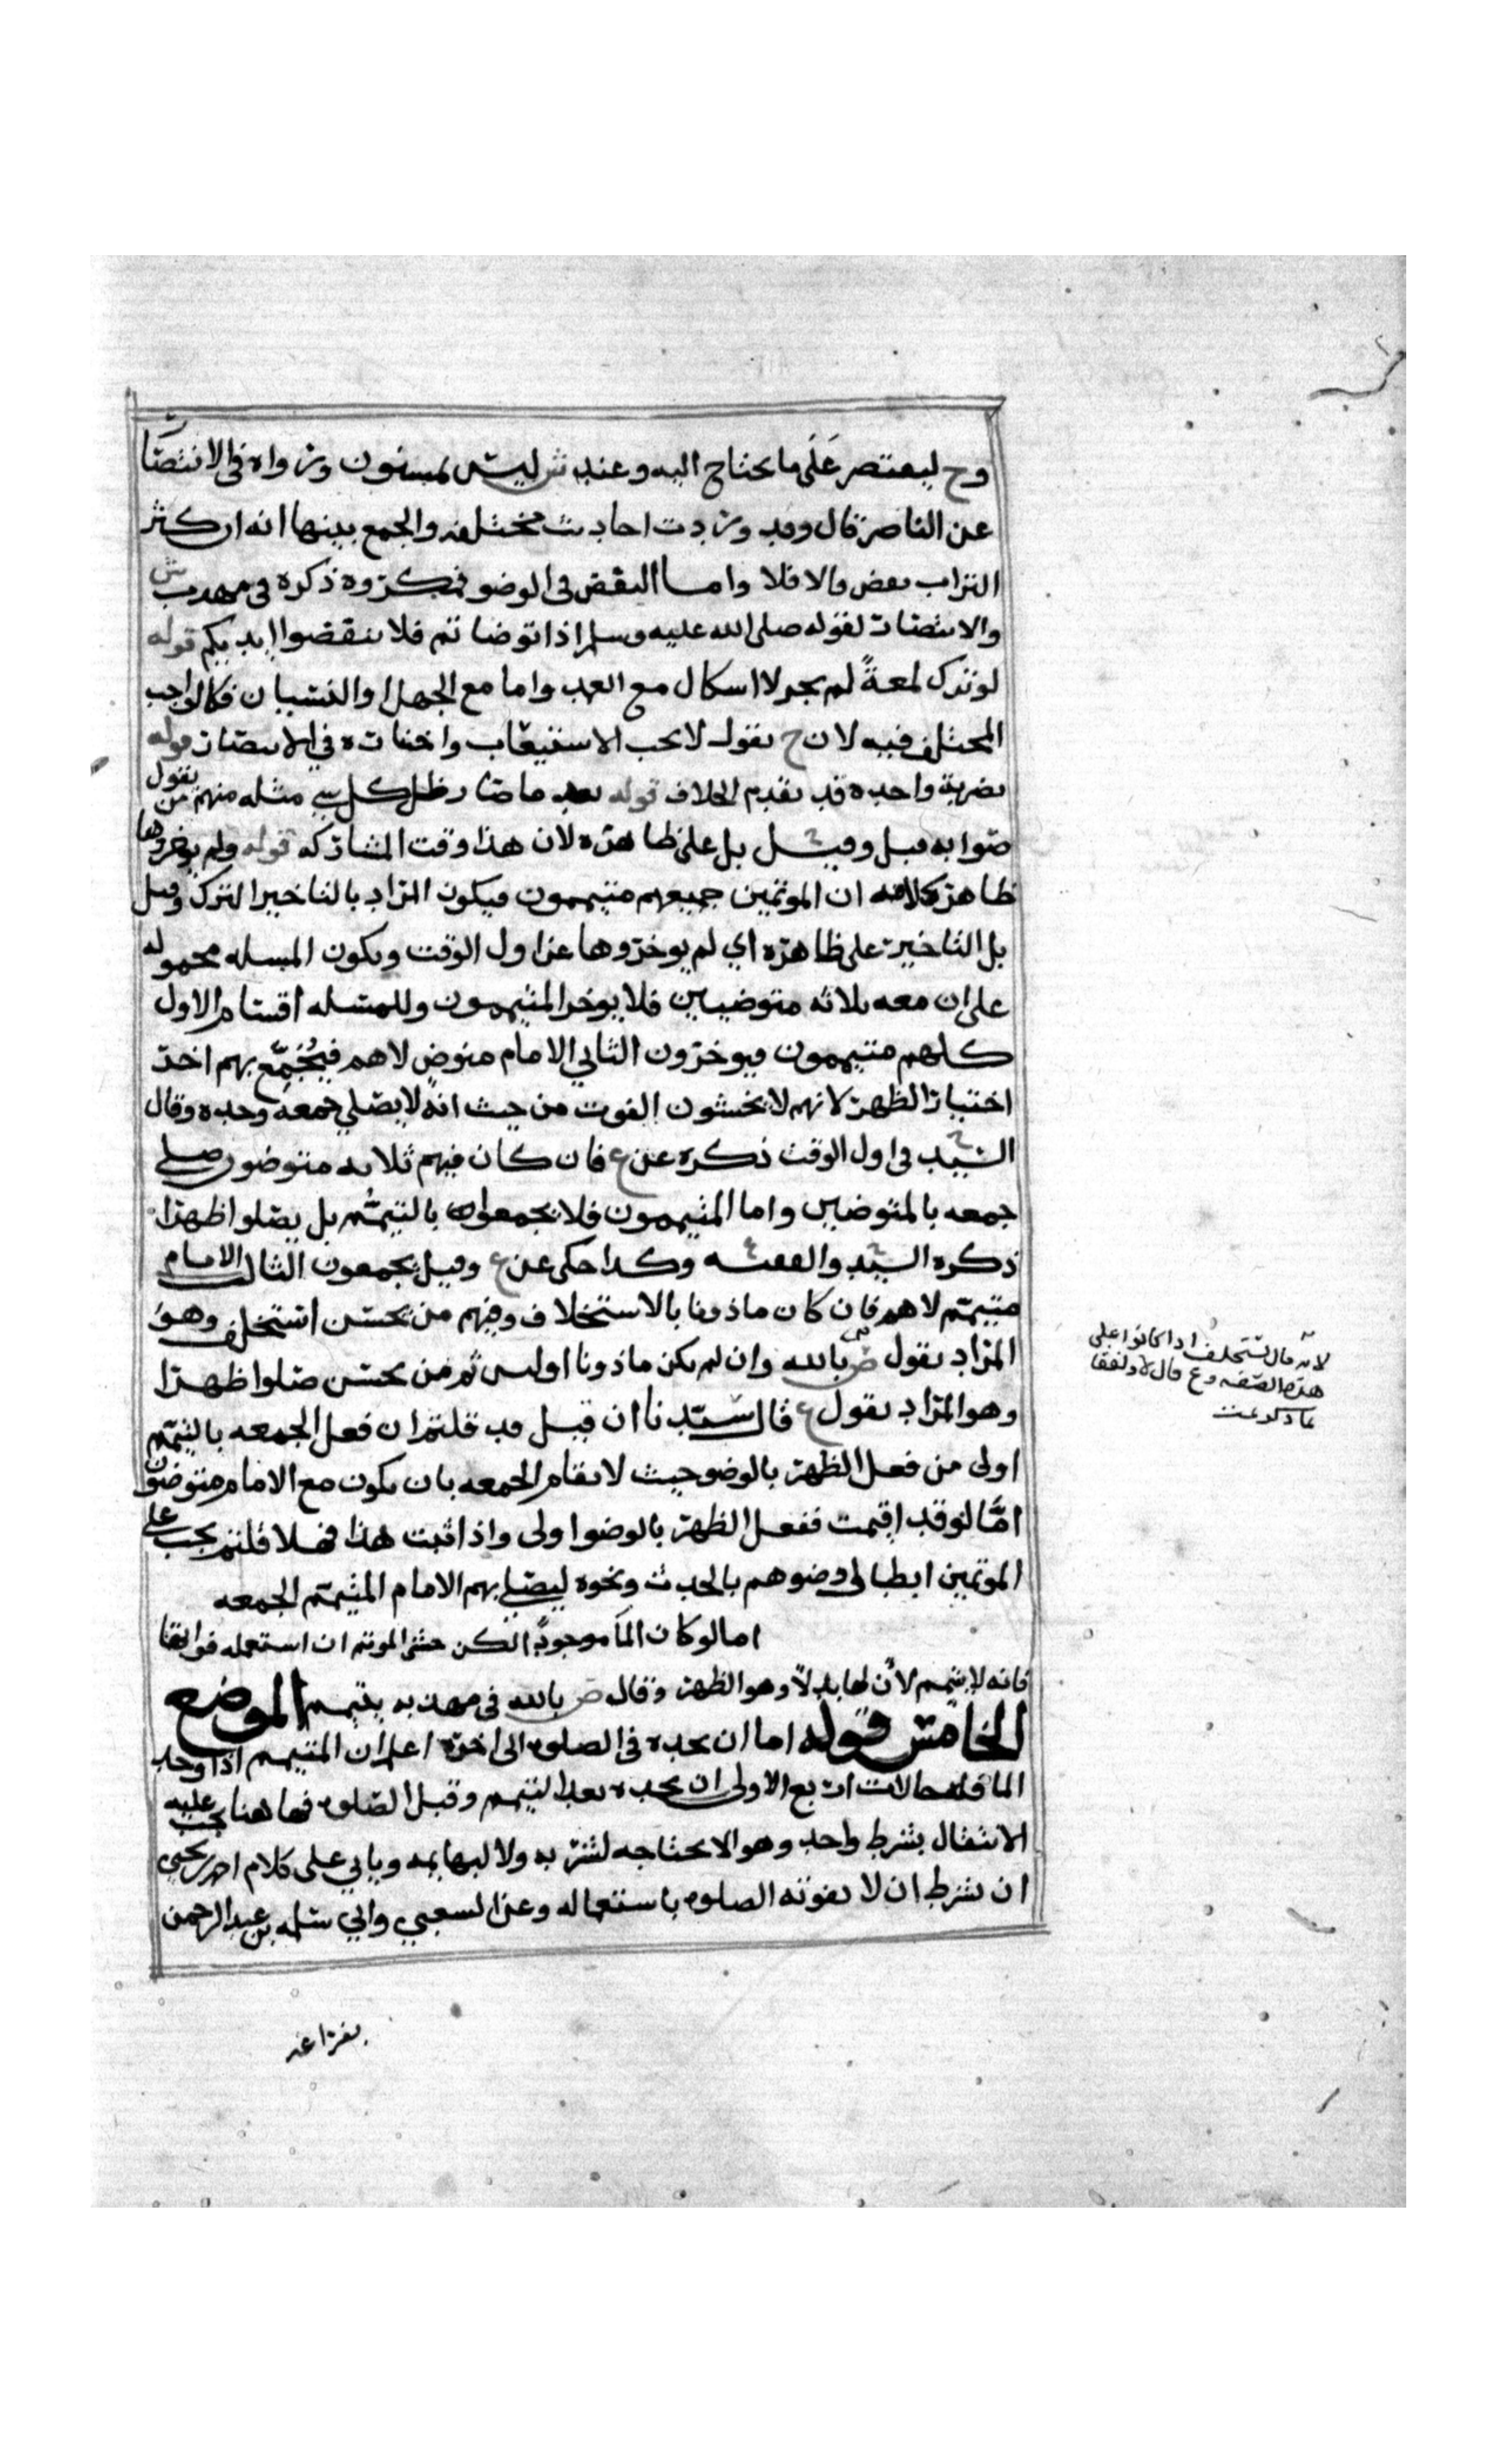 وح ليقتصر على ما يحتاج اليه وعند ش ليس بمسنون ورواه في الانتصار
عن الناصر قال وقد وردت احاديث مختلفه والجمع بينها انه ان كثر
التراب نفض والا فلا واما النفض في الوضو فمكروه ذكره في مهذب ش
والانتصار لقوله صلى الله عليه وسلم اذا توضاتم فلا تنفضوا ايديكم قوله
لو ترك لمعةً لم يجز لا اشكال مع العمد واما مع الجهل والنسيان فكالواجب
المختلف فيه لان ح يقول لا يجب الاستيعاب واختاره في الانتصار قوله
بضربة واحده قد تقدم الخلاف قوله بعد ما صار ظل كل شي مثله منهم من يقول
صوابه قبل وقيل بل على ظاهره لان هذا وقت المشاركه قوله ولم يوخروها
ظاهر كلامه ان الموتمين جميعهم متيممون فيكون المراد بالتاخير الترك وقيل
بل التاخير على ظاهره اي لم يوخروها عن اول الوقت وتكون المسله محموله
على ان معه ثلاثه متوضيين فلا يوخر المتيممون وللمسله اقسام الاول
كلهم متيممون فيوخرون الثاني الامام متوضٍ لا هم فيُجَمِّع بهم اخر
اختيار الظهر لانهم لا يخشون الفوت من حيث انه لا يصلي جمعه وحده وقال
السيد في اول الوقت ذكره عن ع فان كان فيهم ثلاثه متوضون صلى
جمعه بالمتوضيين واما المتيممون فلا يجمعون بالتيمم بل يصلوا ظهرا
ذكره السيد والفقيه وكذا حكى عن ع وقيل يجمعون الثالث الامام
متيمم لا هم فان كان ماذونا بالاستخلاف وفيهم من يحسن استخلف وهو
المراد بقول ض بالله وان لم يكن ماذونا او ليس ثم من يحسن صلوا ظهرا
وهو المراد بقول ع قال سيدنا ان قيل قد قلتم ان فعل الجمعه بالتيمم
اولى من فعل الظهر بالوضو حيث لا تقام الجمعه بان يكون مع الامام متوضون
امَّا لو قد اقيمت ففعل الظهر بالوضو اولى واذا ثبت هذا فهلا قلتم يجب على
الموتمين ابطال وضوهم بالحدث ونحوه ليصلي بهم الامام المتيمم الجمعه
اما لو كان الماء موجوداً لكن خشي الموتم ان استعمله فواتها
فانه لا يتيمم لان لها بدلاً وهو الظهر وقال ض بالله في مهذبه يتيمم الموضع
الخامس قوله اما ان يجده في الصلوه الى اخره اعلم ان المتيمم اذا وجد
الما فله حالات اربع الاولى ان يجده بعد التيمم وقبل الصلوه فهاهنا يجب عليه
الانتقال بشرط واحد وهو الا يحتاجه لشربه ولا لبهايمه وياتي على كلام احمد بن يحيى
ان يشرط ان لا تفوته الصلوه باستعماله وعن الشعبي وابي سلمه بن عبد الرحمن
لانه قال يستخلف اذا كانوا على
هذه الصفه وع قال لا ولفقا